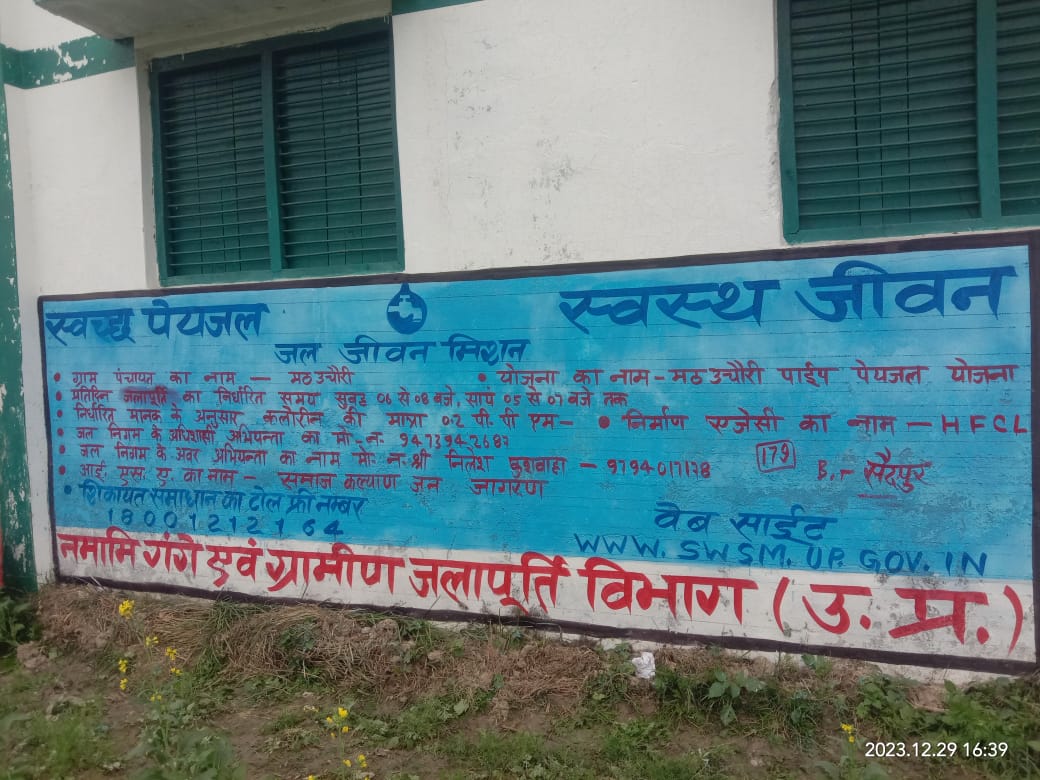 स्वच्छ पेयजल
स्वस्थ जीवन
जल जीवन मिशन
• ग्राम पंचायत का नाम — मठ उचौरी
• योजना का नाम - मठ उचौरी पाईप पेयजल योजना
• प्रतिदिन जलापूर्ति का निर्धारित समय सुबह 06 से 08 बजे, सायं 05 से 07 बजे तक
• निर्धारित मानक के अनुसार क्लोरीन की मात्रा 0.2 पी. पी एम -
• निर्माण एजेंसी का नाम — HFCL
• जल निगम के अधिशासी अभियन्ता का मो. न. 9473942687
• जल निगम के अवर अभियन्ता का नाम मो. न. श्री निलेश कुशवाहा - 9794017178
179 B.- सैदपुर
• आई. एस. ए. का नाम - समाज कल्याण जन जागरण
• शिकायत समाधान का टोल फ्री नम्बर
18001212164
वेब साईट
WWW. SWSM. UP. GOV. IN
नमामि गंगे एवं ग्रामीण जलापूर्ति विभाग (उ. प्र.)
2023.12.29 16:39